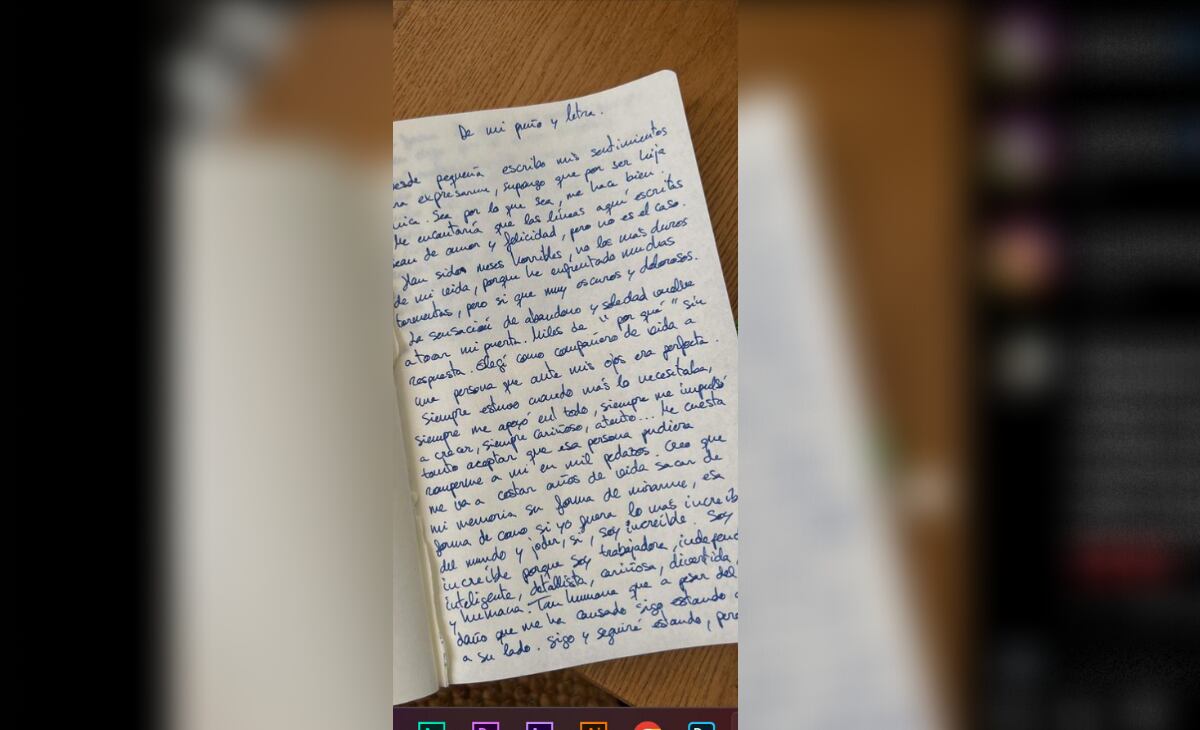 De mi puño y letra.
esde pequeña escribo mis sentimientos
ra expresarme, supongo que por ser hija
nica. Sea por lo que sea, me hace bien.
Me encantaría que las líneas aquí escritas
sean de amor y felicidad, pero no es el caso.
Han sidos meses horribles, no los mas duros
de mi vida, porque he enfrentado muchas
tormentas, pero si que muy oscuros y dolorosos.
La sensación de abandono y soledad vuelve
a tocar mi puerta. Miles de "por qué" sin
respuesta. Elegí como compañero de vida a
una persona que ante mis ojos era perfecta.
Siempre estuvo cuando más lo necesitaba,
siempre me apoyó en todo, siempre me impulsó
a crecer, siempre cariñoso, atento... Me cuesta
tanto aceptar que esa persona pudiera
romperme a mi en mil pedazos. Creo que
me va a costar años de vida sacar de
mi memoria su forma de mirarme, esa
forma de como si yo fuera lo mas increíb
del mundo y joder, si, soy increíble. Soy
increíble porque soy trabajadora, independ
inteligente, detallista, cariñosa, divertida,
y humana. Tan humana que a pesar del
daño que me ha causado sigo estando a
a su lado. Sigo y seguiré estando, pero